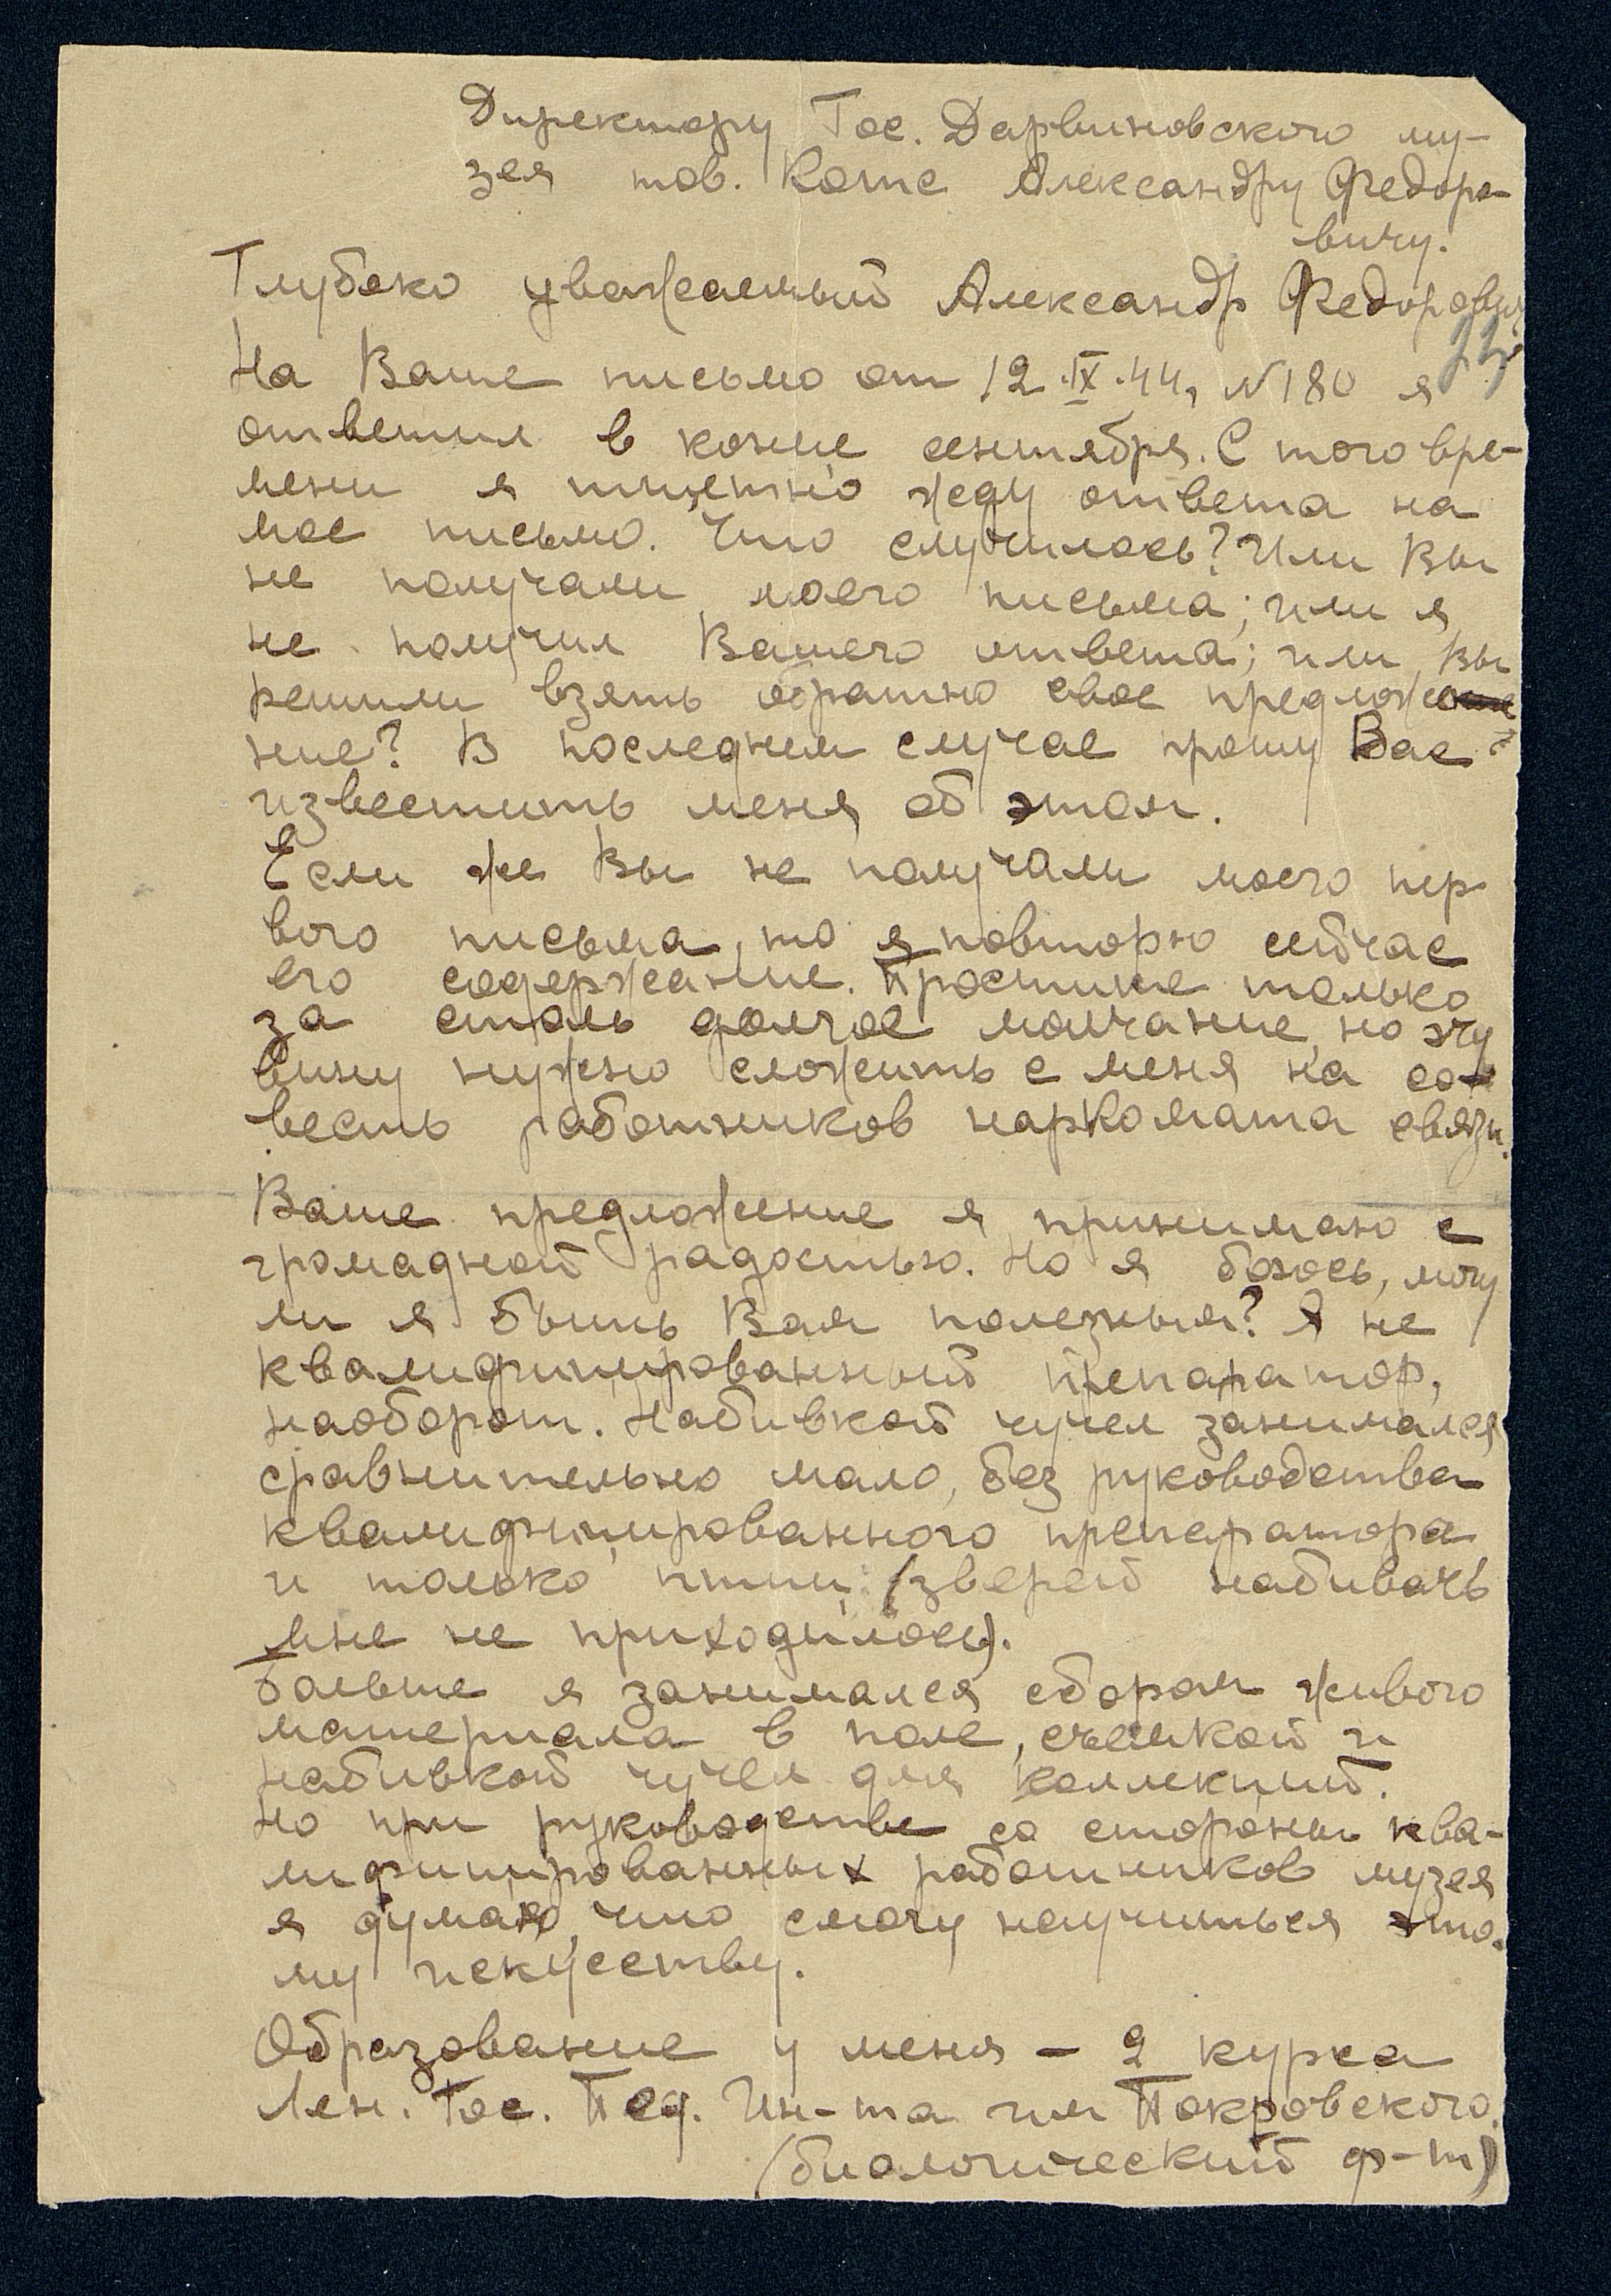 Директору Гос. Дарвиновского му-
зея тов. Котс Александру Федоро-
вичу.
Глубоко уважаемый Александр Федорович
На Ваше письмо от 12.IX.44, N180 я
ответил в конце сентября. С того вре-
мени я тщетно жду ответа на
мое письмо. Что случилось? Или Вы
не получали моего письма; или я
не получил Вашего ответа; или Вы
решили взять обратно свое предложе
ние? В последнем случае прошу Вас
известить меня об этом.
Если же Вы не получали моего пер
вого письма, то я повторю сейчас
его содержание. Простите только
за столь долгое молчание, но эту
вину нужно сложить с меня на со-
весть работников наркомата связи.
Ваше предложение я принимаю с
громадной радостью. Но я боюсь, могу
ли я быть Вам полезным? Я не
квалифицированный препаратор,
наоборот. Набивкой чучел занимался
сравнительно мало, без руководства
квалифицированного препаратора
и только птиц (зверей набивать
мне не приходилось).
Больше я занимался сбором живого
материала в поле, съемкой и
набивкой чучел для коллекций.
Но при руководстве со стороны ква-
лифицированных работников музея
я думаю, что смогу научиться это-
му искусству.
Образование у меня – 2 курса
Лен. Гос. Пед. Ин-та им Покровского.
(биологический ф-т)